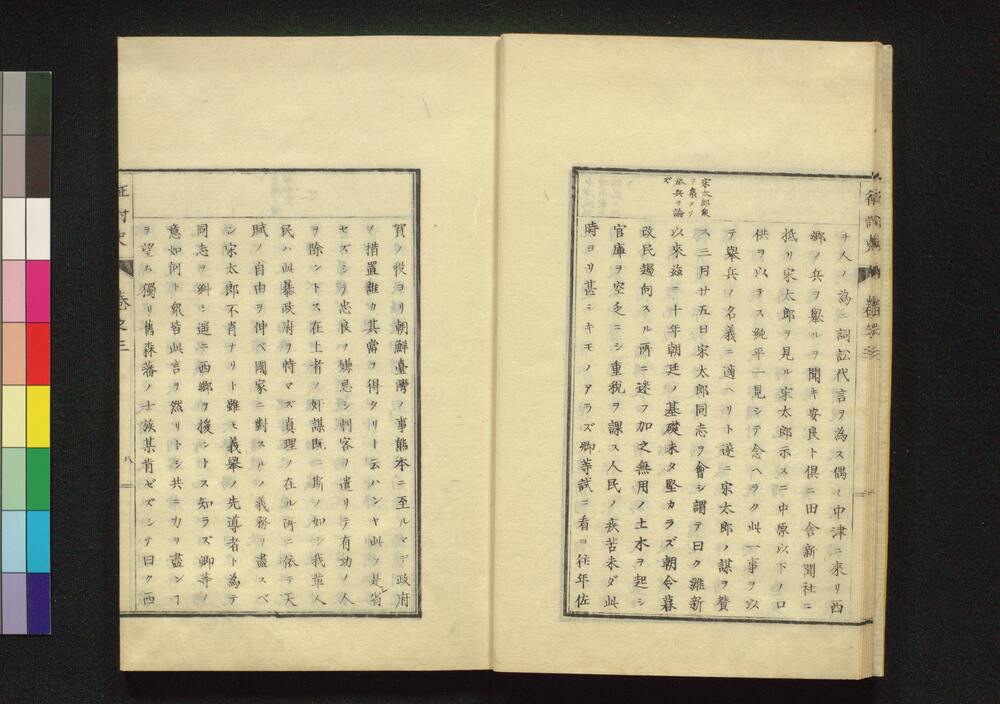 チ人ノ為ニ詞訟代言ヲ為ス偶々中津ニ來リ西
郷ノ兵ヲ舉ルヲ聞キ安民ト倶ニ田舎新聞社ニ
抵リ宋太郎ヲ見ル宋太郎示スニ中原以下ノ口
供ヲ以テス純平一見シテ念ヘラク此一事ヲ以
テ舉兵ノ名義ニ適ヘリト遂ニ宋太郎ノ謀ヲ賛
宋太郎衆
ヲ集メテ
舉兵ヲ論
ズ
ス三月廿五日宋太郎同志ヲ會シ謂テ曰ク維新
以來茲ニ十年朝廷ノ基礎未タ堅カラズ朝令暮
改民趨向スル所ニ迷フ加之無用ノ土木ヲ起シ
官庫ヲ空乏ニシ重税ヲ課ス人民ノ疾苦未ダ此
時ヨリ甚シキモノアラズ卿等試ニ看ヨ往年佐
賀ノ役ヨリ朝鮮臺灣ノ事熊本ニ至ルマデ政府
ノ措置誰カ其當ヲ得タリト云ハンヤ此ヲ是省
セズシテ忠良ヲ嫌忌シ刺客ヲ遣リテ有功ノ人
ヲ除ントス在上者ノ奸謀既ニ斯ノ如シ我輩人
民ハ此暴政府ヲ恃マズ真理ノ在ル所ニ依テ天
賦ノ自由ヲ伸ベ國家ニ對スルノ義務ヲ盡スベ
シ宋太郎不肖ナリト雖モ義舉ノ先導者ト為テ
同志ヲ糾シ遥ニ西郷ヲ援ントス知ラズ卿等ノ
意如何ト衆皆此言ヲ然リトシ共ニ力ヲ盡ンヿ
ヲ望ム獨リ舊森藩ノ士族某肯ゼズシテ曰ク西
征討史
巻之三
八